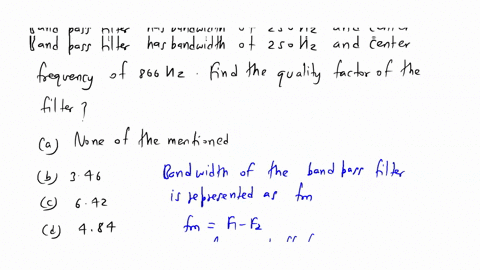 Band pass filter has bandwidth of 250 Hz and center
Band pass filter has bandwidth of 250 Hz and center
frequency of 866 Hz. Find the quality factor of the
filter?
(a) None of the mentioned
(b) 3.46
(c) 6.42
(d) 4.84
Bandwidth of the band pass filter
is represented as fm
fm = F1 - F2